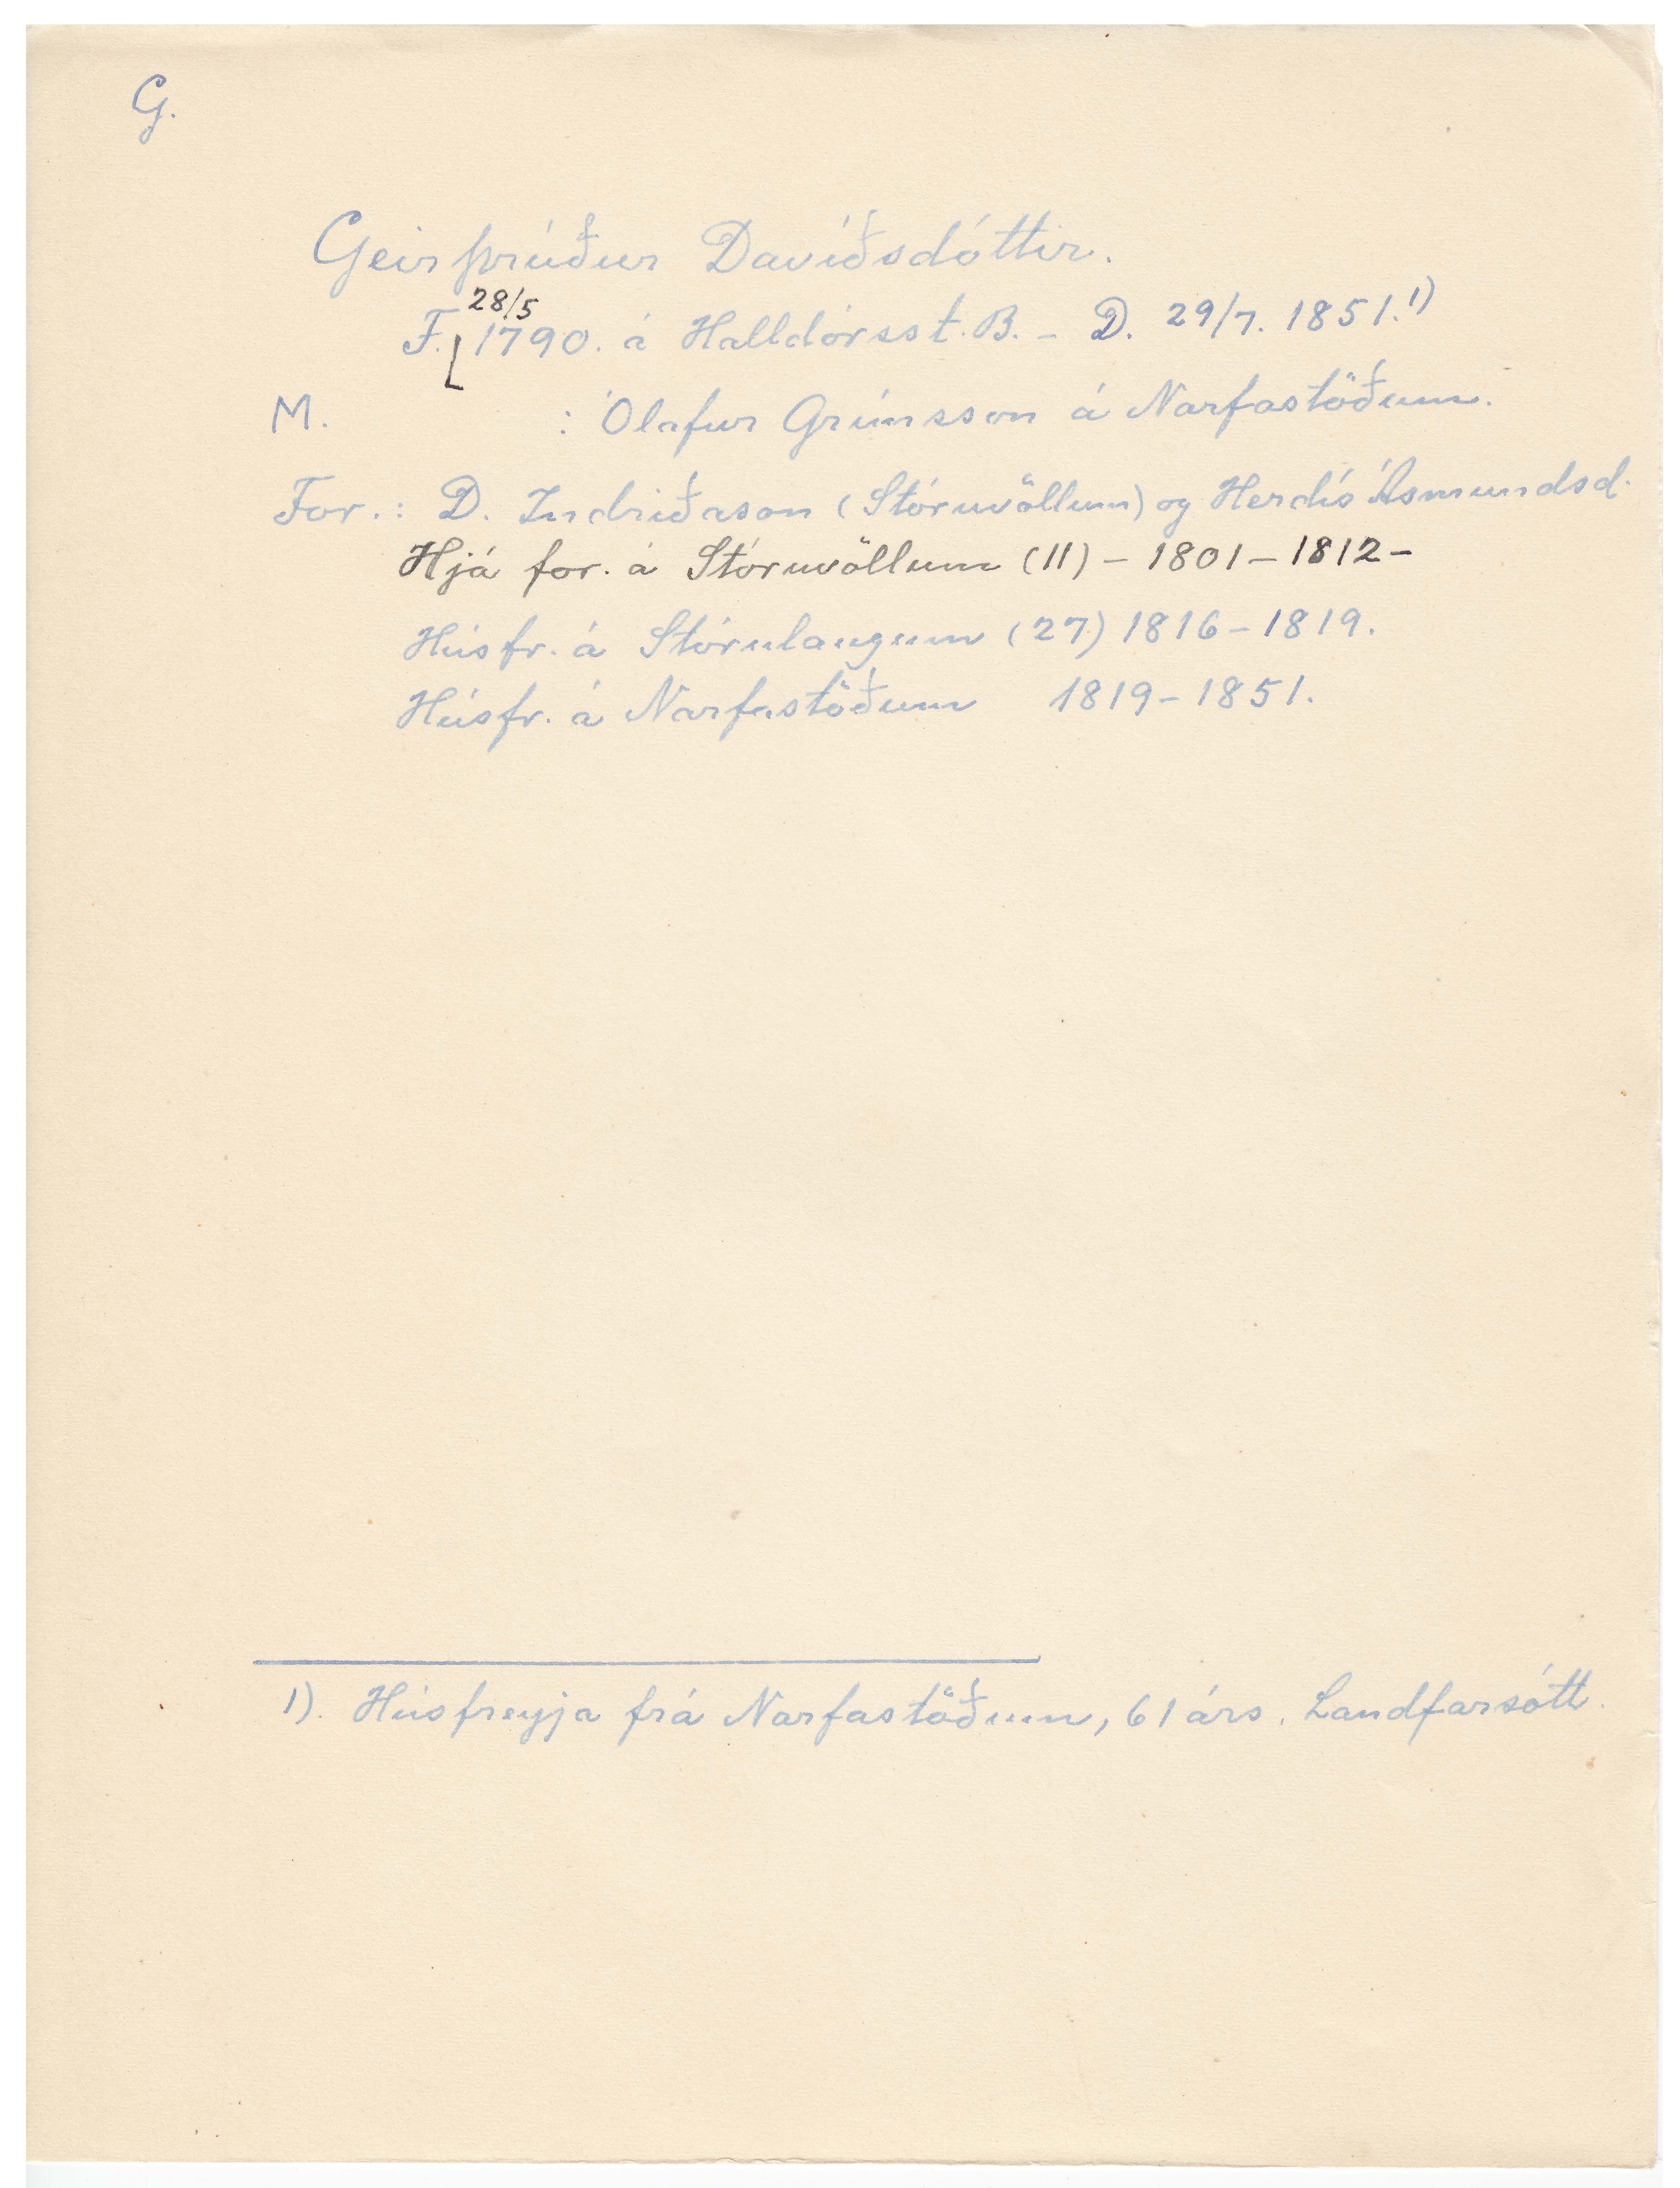 G.
Geirþrúður Davíðsdóttir.
F. 28/5 1790. á Halldórsst. B. - D. 29/7. 1851. 1)
M. : Ólafur Grímsson á Narfastöðum.
For.: D. Indriðason (Stóruvöllum) og Herdís Ásmundsd.
Hjá for. á Stóruvöllum (11) - 1801 - 1812 -
Húsfr. á Stórulaugum (27) 1816 - 1819.
Húsfr. á Narfastöðum 1819 - 1851.
1). Húsfreyja frá Narfastöðum, 61 árs. Landfarsótt.